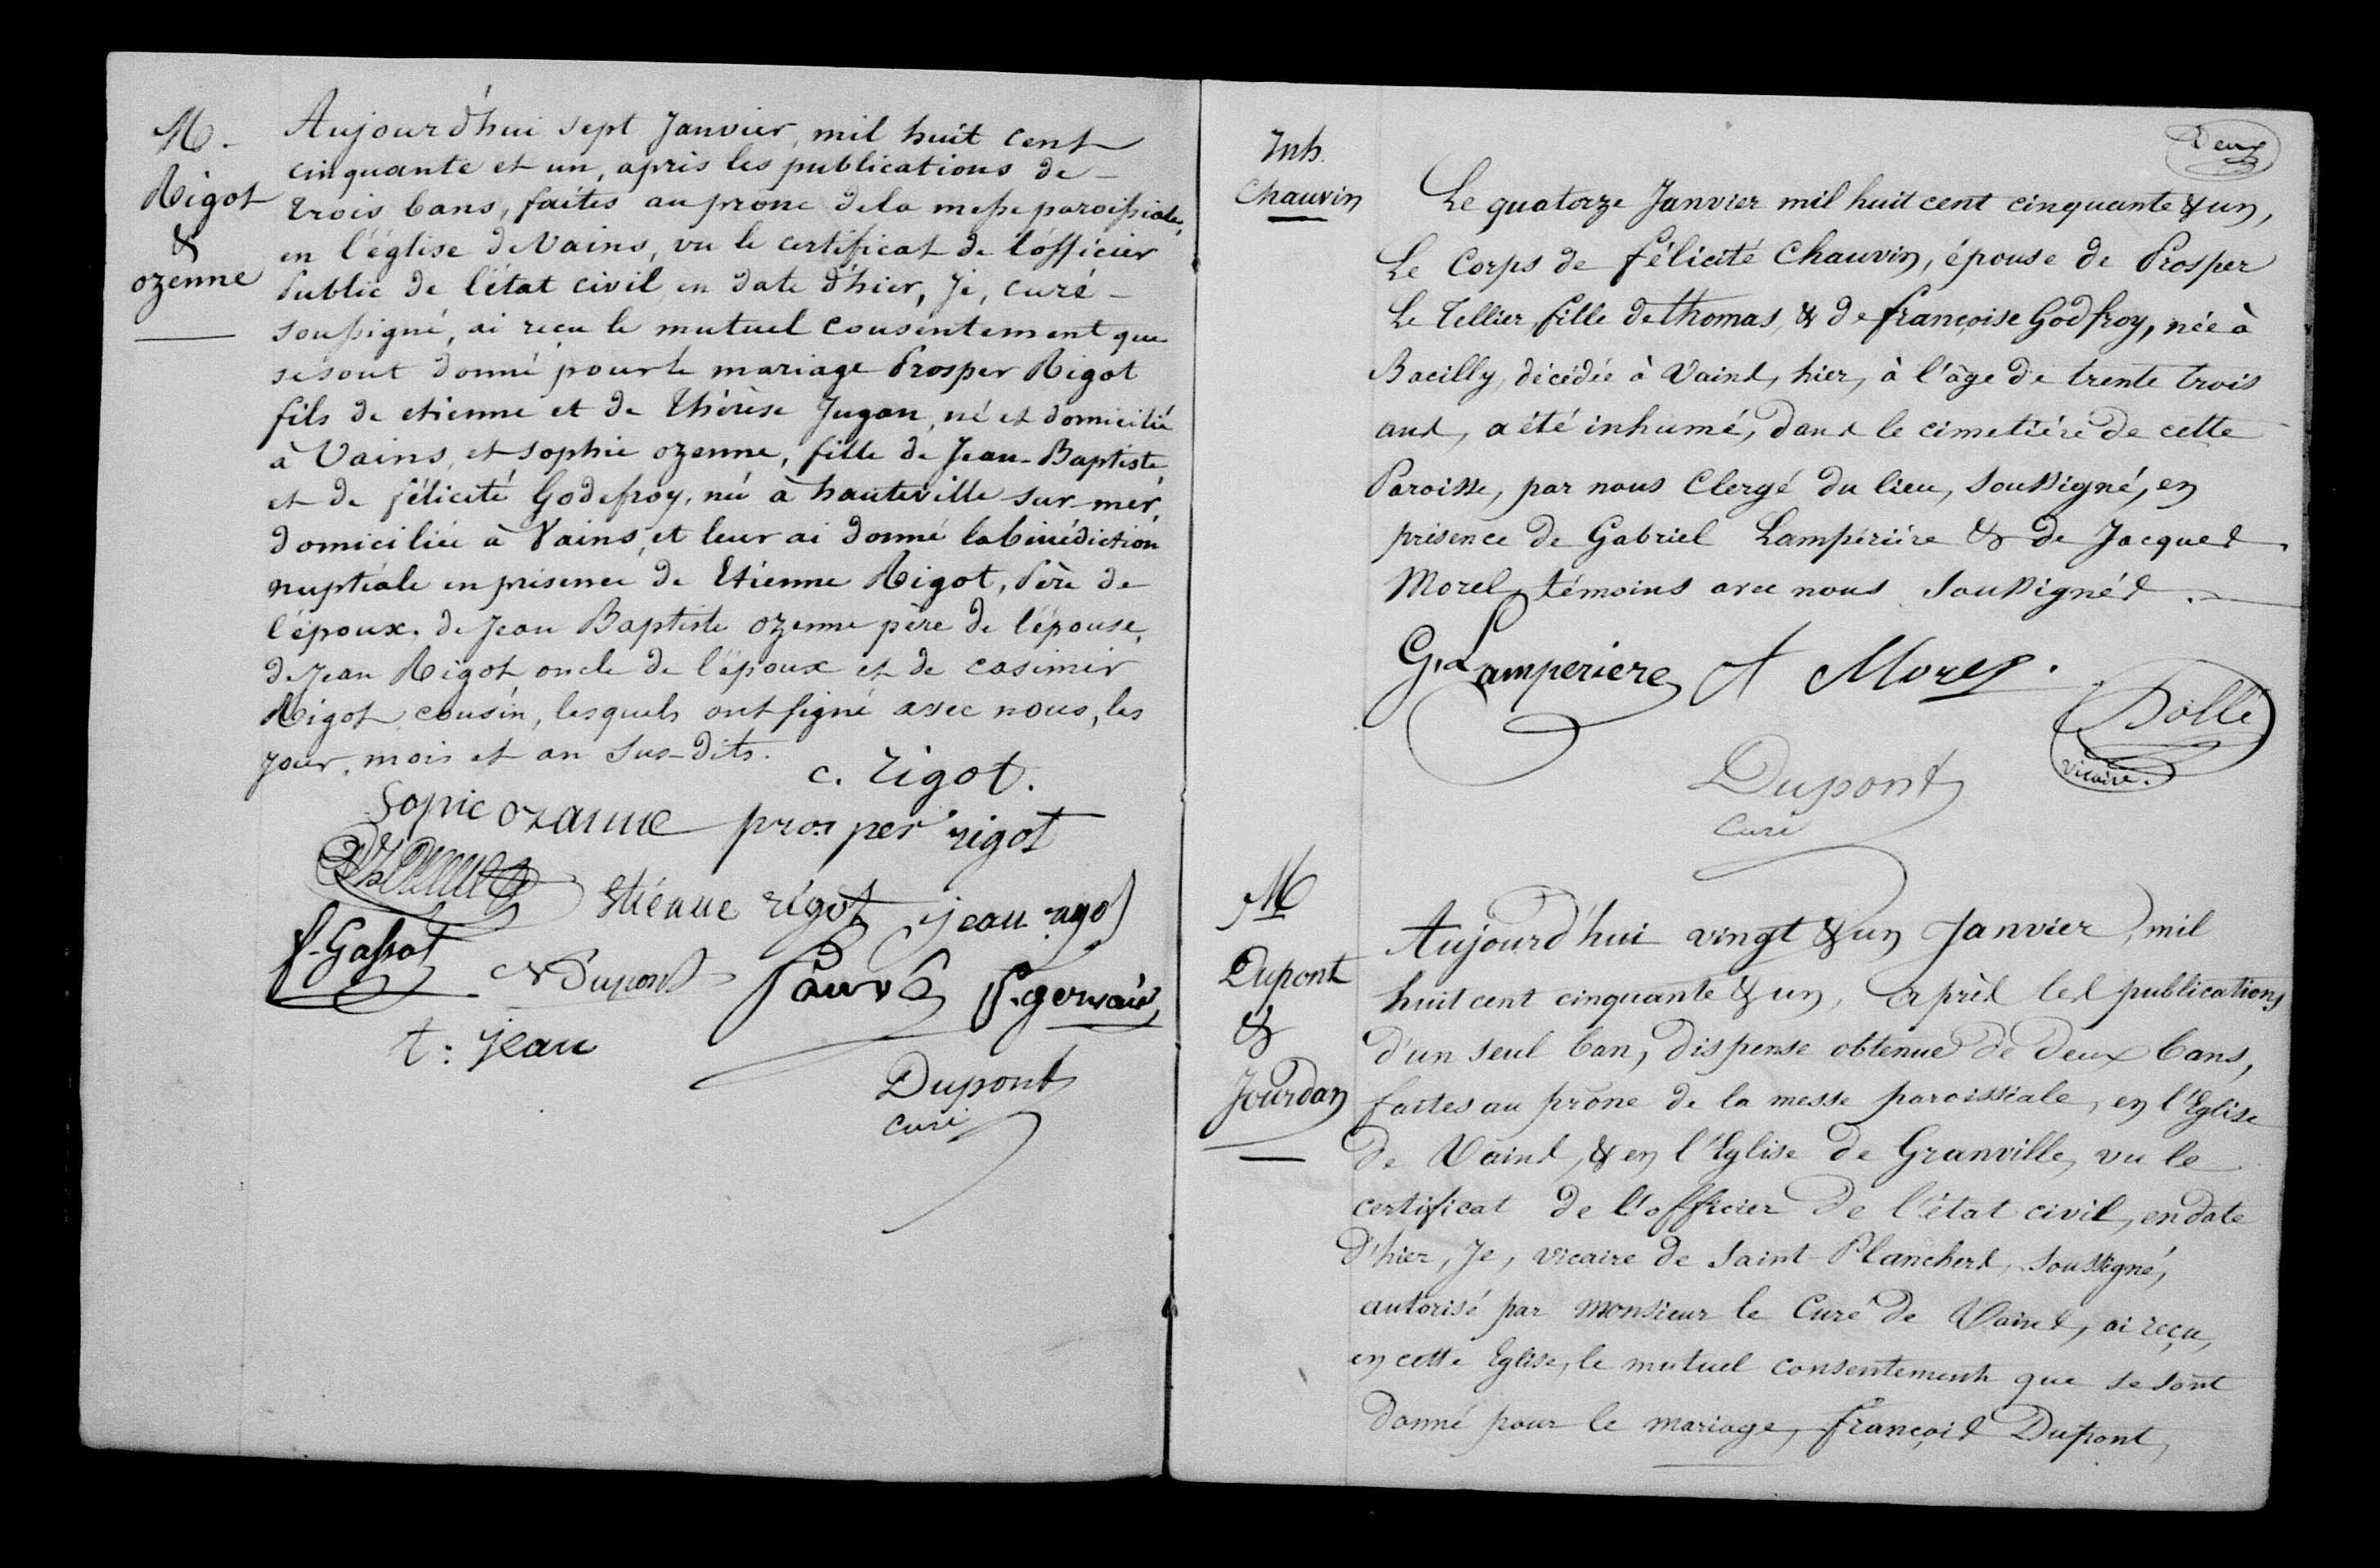 M.
Rigot
&
ozenne
Aujourd'hui sept Janvier, mil huit cent
cinquante et un, après les publications de
trois bans, faites au prone dela messe paroissiale,
en l'église de Vains, vu le certificat de l'officier
Public de l'état civil en date d'hier, Je, curé
soussigné, ai reçu le mutuel consentement que
se sont donné pour le mariage Prosper Rigot
fils de etienne et de Thérèse Jugan, né et domicilié
à Vains, et sophie ozenne, fille de Jean-Baptiste
et de félicité Godefroy, née à hauteville sur-mer,
domiciliée à Vains, et leur ai donné la bénédiction
nuptiale en présence de Etienne Rigot, Père de
l'époux, de Jean Baptiste ozenne père de l'épouse,
de Jean Rigot oncle de l'époux et de casimir
Rigot cousin, lesquels ont signé avec nous, les
jour, mois et an sus-dits.
c. rigot.
Sopie ozanne prosper rigot
Etienne rigot jean rigot
f. Gassot
Dupont f. gervais
t: jean
Dupont
curé
Deux
Inh.
Chauvin
Le quatorze Janvier mil huit cent cinquante & un,
Le Corps de félicité Chauvin, épouse de Prosper
Le Tellier fille de thomas, & de françoise Godfroy, née à
Bacilly, décédée à Vains, hier, à l'âge de trente trois
ans, a été inhumé, dans le cimetière de cette
Paroisse, par nous Clergé du lieu, soussigné, en
présence de Gabriel Lampérière & de Jacques
Morel, témoins avec nous soussignés.
G. Lamperiere Morel.
Dollé
vicaire.
Dupont
curé
M
Dupont
&
Jourdan
Aujourd'hui vingt & un Janvier, mil
huit cent cinquante & un, après les publications
d'un seul ban, dispense obtenue de deux bans,
faites au prône de la messe paroissiale, en l'Eglise
de Vains, & en l'Eglise de Granville, vu le
certificat de l'officier de l'état civil, en date
d'hier, Je, vicaire de Saint-Planchers, soussigné,
autorisé par Monsieur le Curé de Vains, ai reçu,
en cette Eglise, le mutuel consentement que se sont
donné pour le mariage, françois Dupont,